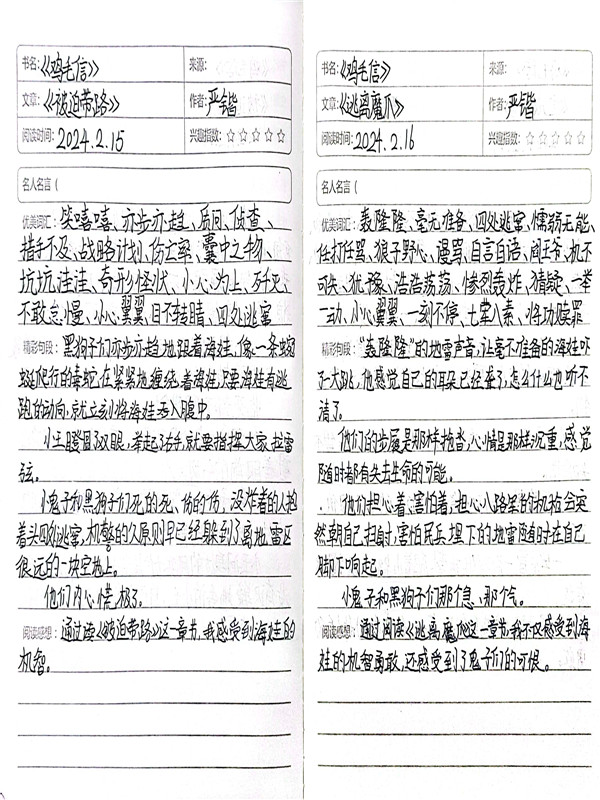 书名:《鸡毛信》 来源:
文章:《被迫带路》 作者:严锴
阅读时间:2024.2.15 兴趣指数:☆☆☆☆☆
名人名言(
优美词汇:笑嘻嘻、亦步亦趋、质问、侦查、
措手不及、战略计划、伤亡率、囊中之物、
坑坑洼洼、奇形怪状、小心为上、歼灭、
不敢怠慢、小心翼翼、目不转睛、四处逃窜
精彩句段:黑狗子们亦步亦趋地跟着海娃,像一条蜿
蜒爬行的毒蛇在紧紧地缠绕着海娃,只要海娃有逃
跑的动向,就立刻将海娃吞入腹中。
小王瞪圆了双眼,举起了右手,就要指挥大家拉雷
弦。
小鬼子和黑狗子们死的死、伤的伤,没炸着的人抱
着头四处逃窜,机警的久原则早已经躲到了离地雷区
很远的一块空地上。
他们内心慌极了。
阅读感想:通过读《被迫带路》这一章节,我感受到海娃的
机智。
书名:《鸡毛信》 来源:
文章:《逃离魔爪》 作者:严锴
阅读时间:2024.2.16 兴趣指数:☆☆☆☆☆
名人名言(
优美词汇:轰隆隆、毫无准备、四处逃窜、懦弱无能、
任打任骂、狼子野心、谩骂、自言自语、阎王爷、机不
可失、犹豫、浩浩荡荡、惨烈轰炸、猜疑、一举
一动、小心翼翼、一刻不停、七荤八素、将功赎罪
精彩句段:“轰隆隆”的地雷声音,让毫不准备的海娃吓
了一大跳,他感觉自己的耳朵已经聋了,怎么什么也听不
清了。
他们的步履是那样拖沓,心情是那样沉重,感觉
随时都有失去生命的可能。
他们担心着、害怕着,担心八路军的机枪会突
然朝自己扫射,害怕民兵埋下的地雷随时在自己
脚下响起。
小鬼子和黑狗子们那个急、那个气。
阅读感想:通过阅读《逃离魔爪》这一章节,我不仅感受到海
娃的机智勇敢,还感受到了鬼子们的可恨。